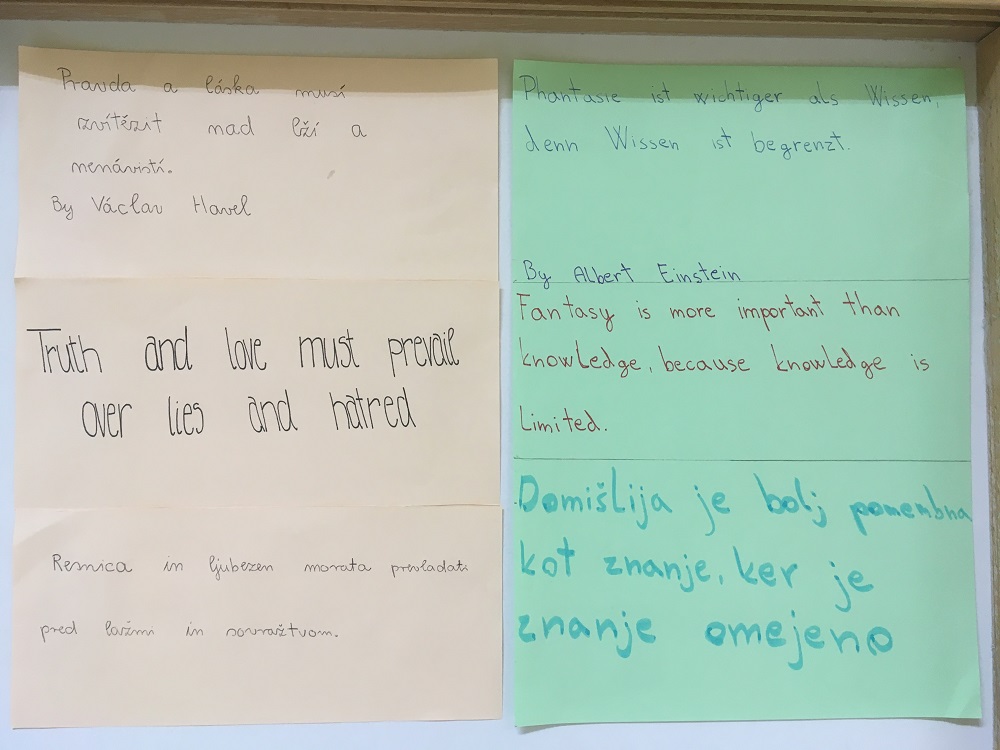 Pravda a láska musí
zvítězit nad lží a
nenávistí.
By Václav Havel
Truth and love must prevail
over lies and hatred
Resnica in ljubezen morata prevladati
pred lažmi in sovraštvom.
Phantasie ist wichtiger als Wissen,
denn Wissen ist begrenzt.
By Albert Einstein
Fantasy is more important than
knowledge, because knowledge is
Limited.
Domišlija je bolj pomembna
kot znanje, ker je
znanje omejeno